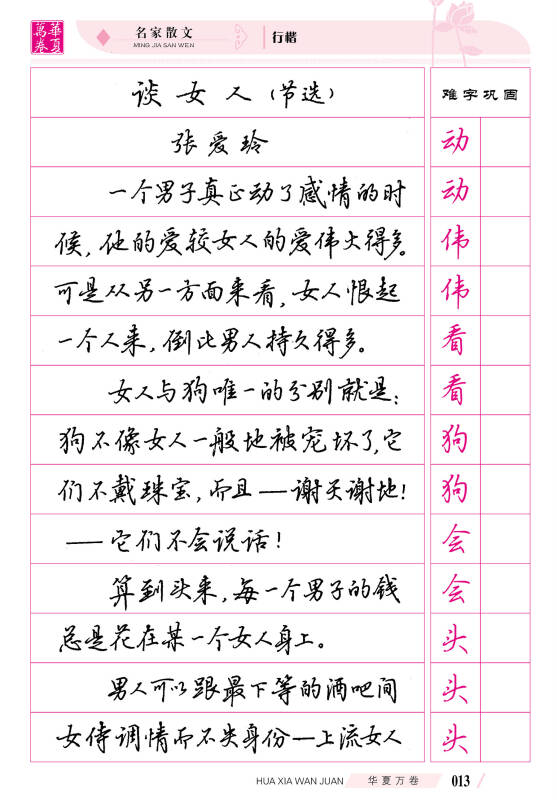 華夏
萬卷
名家散文
MING JIA SAN WEN
行楷
谈女人（节选）
难字巩固
张爱玲
动
一个男子真正动了感情的时
动
候，他的爱较女人的爱伟大得多。
伟
可是从另一方面来看，女人恨起
伟
一个人来，倒比男人持久得多。
看
女人与狗唯一的分别就是：
看
狗不像女人一般地被宠坏了，它
狗
们不戴珠宝，而且——谢天谢地！
狗
——它们不会说话！
会
算到头来，每一个男子的钱
会
总是花在某一个女人身上。
头
男人可以跟最下等的酒吧间
头
女侍调情而不失身份——上流女人
头
HUA XIA WAN JUAN
华夏万卷
013